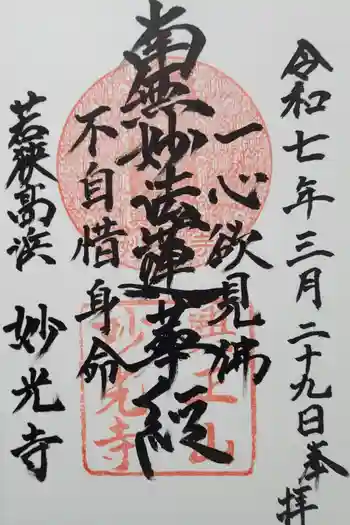 令和七年三月二十九日奉拝
一心欲見佛
南無妙法蓮華経
不自惜身命
若狭高浜
妙光寺
妙光寺